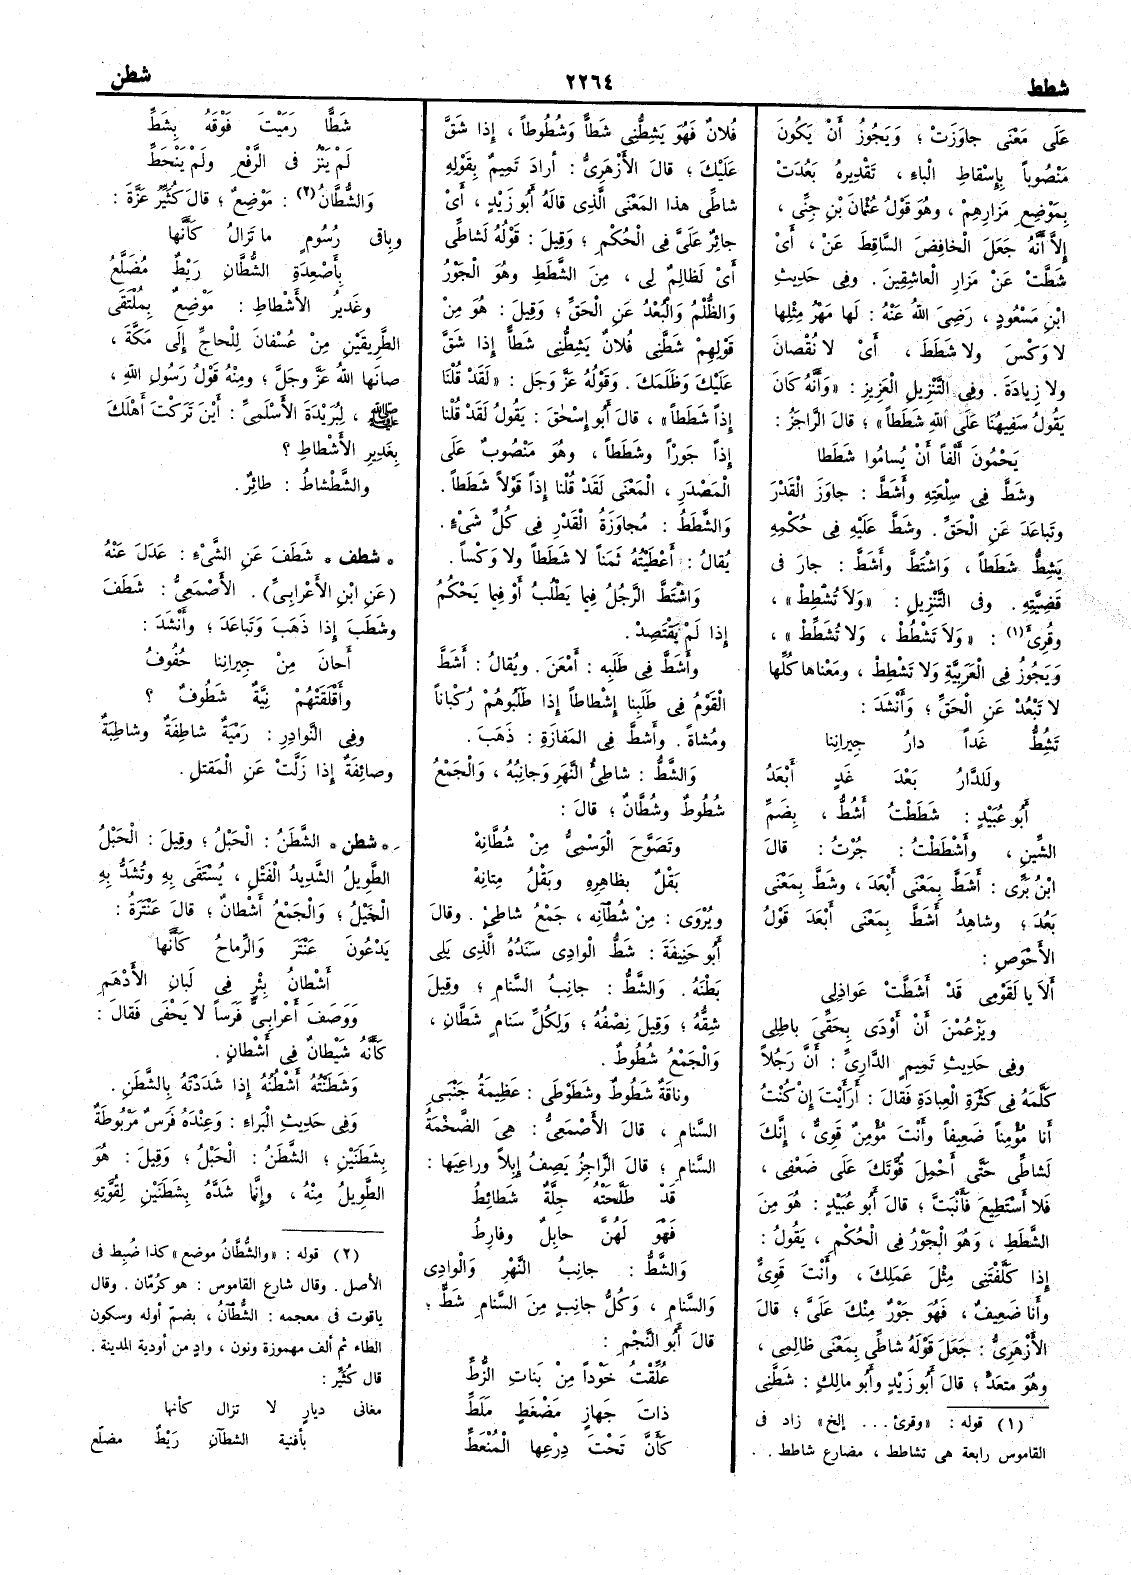 شطط
٢٢٦٤
شطن
عَلَى مَعْنَى جاوَزَتْ ؛ وَيَجُوزُ أَنْ يَكُونَ
مَنْصُوباً بِإِسْقاطِ الْباءِ ، تَقْدِيرهُ بَعُدَتْ
بِمَوْضِعِ مَزارِهِمْ ، وهُوَ قَوْلُ عُثْمانَ بْنِ جِنِّى ،
إِلَّا أَنَّهُ جَعَلَ الْخافِضَ السَّاقِطَ عَنْ ، أَىْ
شَطَّتْ عَنْ مَزارِ الْعاشِقِينَ . وفِى حَدِيثِ
ابْنِ مَسْعُودٍ ، رَضِىَ اللّٰهُ عَنْهُ : لَها مَهْرُ مِثْلِها
لا وَكْسَ ولا شَطَطَ ، أَىْ لا نُقْصانَ
ولا زِيادَةَ . وفِى التَّنْزِيلِ الْعَزِيزِ : «وَأَنَّهُ كانَ
يَقُولُ سَفِيهُنَا عَلَى اللّٰهِ شَطَطاً» ؛ قالَ الرَّاجِزُ :
يَحْمُونَ أَلْفاً أَنْ يُسامُوا شَطَطا
وشَطَّ فِى سِلْعَتِهِ وأَشَطَّ : جاوَزَ الْقَدْرَ
وتَباعَدَ عَنِ الْحَقِّ . وشَطَّ عَلَيْهِ فِى حُكْمِهِ
يَشِطُّ شَطَطاً ، وَاشْتَطَّ وأَشَطَّ : جارَ فى
قَضِيَّتِهِ . وفى التَّنْزِيلِ : «وَلاَ تُشْطِطْ» ،
وقُرِئَ(١) : «وَلاَ تَشْطُطْ ، وَلا تُشَطِّطْ» ،
وَيَجُوزُ فِى الْعَرَبِيَّةِ وَلا تَشْطِطْ ، ومَعْناها كُلِّها
لا تَبْعُدْ عَنِ الْحَقِّ ؛ وَأَنْشَدَ :
تَشُطُّ غَداً دارُ جِيرانِنا
ولَلدَّارُ بَعْدَ غَدٍ أَبْعَدُ
أَبُو عُبَيْدٍ : شَطَطْتُ أَشُطُّ ، بِضَمِّ
الشِّينِ ، وأَشْطَطْتُ : جُرْتُ : قالَ
ابْنُ بَرِّى : أَشَطَّ بِمَعْنَى أَبْعَدَ ، وشَطَّ بِمَعْنَى
بَعُدَ ؛ وشاهِدُ أَشَطَّ بِمَعْنَى أَبْعَدَ قَوْلُ
الأَحْوَصِ :
أَلاَ يا لَقَوْمِى قَدْ أَشَطَّتْ عَواذِلِى
ويَزْعُمْنَ أَنْ أَوْدَى بِحَقِّىَ باطِلِى
وفِى حَدِيثِ تَمِيمٍ الدَّارِىِّ : أَنَّ رَجُلاً
كَلَّمَهُ فِى كَثْرَةِ الْعِبادَةِ فَقالَ : أَرَأَيْتَ إِنْ كُنْتُ
أَنا مُؤْمِناً ضَعِيفاً وأَنْتَ مُؤْمِنٌ قَوِىٌّ ، إِنَّكَ
لَشاطِّى حَتَّى أَحْمِلَ قُوَّتَكَ عَلَى ضَعْفِى ،
فَلا أَسْتَطِيعَ فَأَنْبَتَّ ؛ قالَ أَبُو عُبَيْدٍ : هُوَ مِنَ
الشَّطَطِ ، وَهُوَ الْجَوْرُ فِى الْحُكْمِ ، يَقُولُ :
إِذا كَلَّفْتَنِى مِثْلَ عَمَلِكَ ، وأَنْتَ قَوِىٌّ
وأَنا ضَعِيفٌ ، فَهُوَ جَوْرٌ مِنْكَ عَلَىَّ ؛ قالَ
الأَزْهَرِىُّ : جَعَلَ قَوْلَهُ شاطِّى بِمَعْنَى ظالِمِى ،
وهُوَ مُتَعَدٍّ ؛ قالَ أَبُو زَيْدٍ وأَبُو مالِكٍ : شَطَّنِى
(١) قوله : «وقرئ... إلخ» زاد فى
القاموس رابعة هى تشاطط ، مضارع شاطط .
فُلانٌ فَهُوَ يَشِطُّنِى شَطاًّ وَشُطُوطاً ، إِذا شَقَّ
عَلَيْكَ ؛ قالَ الأَزْهَرِىُّ : أَرادَ تَمِيمٌ بِقَوْلِهِ
شاطِّى هذا المَعْنَى الَّذِى قالَهُ أَبُو زَيْدٍ ، أَىْ
جائِرٌ عَلَىَّ فِى الْحُكْمِ ؛ وَقِيلَ : قَوْلُهُ لَشاطِّى
أَىْ لَظالِمٌ لِى ، مِنَ الشَّطَطِ وهُوَ الْجَوْرُ
وَالظُّلْمُ وَالْبُعْدُ عَنِ الْحَقِّ ؛ وَقِيلَ : هُوَ مِنْ
قَوْلِهِمْ شَطَّنِى فُلانٌ يَشِطُّنِى شَطاًّ إِذا شَقَّ
عَلَيْكَ وَظَلَمَكَ . وَقَوْلُهُ عَزَّ وَجَل : «لَقَدْ قُلْنَا
إِذاً شَطَطاً» ، قالَ أَبُو إِسْحٰقَ : يَقُولُ لَقَدْ قُلْنا
إِذاً جَوْراً وشَطَطاً ، وهُوَ مَنْصُوبٌ عَلَى
الْمَصْدَرِ ، الْمَعْنَى لَقَدْ قُلْنا إِذاً قَوْلاً شَطَطاً .
وَالشَّطَطُ : مُجاوَزَةُ الْقَدْرِ فِى كُلِّ شَىْءٍ .
يُقالُ : أَعْطَيْتُهُ ثَمَناً لا شَطَطاً ولا وَكْساً .
وَاشْتَطَّ الرَّجُلُ فِيما يَطْلُبُ أَوْ فِيما يَحْكُمُ
إِذا لَمْ يَقْتَصِدْ .
وأَشَطَّ فِى طَلَبِهِ : أَمْعَنَ . ويُقالُ : أَشَطَّ
الْقَوْمُ فِى طَلَبِنا إِشْطاطاً إِذا طَلَبُوهُمْ رُكْباناً
ومُشاةً . وأَشَطَّ فِى المَفازَةِ : ذَهَبَ .
وَالشَّطُّ : شاطِئُ النَّهَرِ وَجانِبُهُ ، وَالْجَمْعُ
شُطُوطٌ وشُطَّانٌ ؛ قالَ :
وتَصَوَّحَ الْوَسْمِىُّ مِنْ شُطَّانِهْ
بَقْلٌ بِظاهِرِهِ وبَقْلُ مِتانِهْ
ويُرْوَى : مِنْ شُطْآنِه ، جَمْعُ شاطِئْ . وقالَ
أَبُو حَنِيفَةَ : شَطُّ الْوادِى سَنَدُهُ الَّذِى يَلِى
بَطْنَهُ . وَالشَّطُّ : جانِبُ السَّنامِ ؛ وقِيلَ
شِقُّهُ ؛ وَقِيلَ نِصْفُهُ ؛ وَلِكُلِّ سَنامٍ شَطَّانِ ،
وَالْجَمْعُ شُطُوطٌ .
وناقَةٌ شَطُوطٌ وشَطَوْطَى : عَظِيمَةُ جَنْبَىِ
السَّنامِ ، قالَ الأَصْمَعِىُّ : هِىَ الضَّخْمَةُ
السَّنامِ ؛ قالَ الرَّاجِزُ يَصِفُ إِبِلاً وراعِيَها :
قَدْ طَلَّحَتْهُ جِلَّةٌ شَطائِطُ
فَهْوَ لَهُنَّ حابِلٌ وفارِطُ
وَالشَّطُّ : جانِبُ النَّهْرِ وَالْوادِى
وَالسَّنامِ ، وَكُلُّ جانِبٍ مِنَ السَّنامِ شَطٌّ ؛
قالَ أَبُو النَّجْمِ :
عُلِّقْتُ خَوْداً مِنْ بَناتِ الزُّطِّ
ذاتَ جَهازٍ مَضْغَطٍ مَلَطِّ
كَأَنَّ تَحْتَ دِرْعِها الْمُنْعَطِّ
شَطًّا رَمَيْتَ فَوْقَهُ بِشَطِّ
لَمْ يَنْزُ فى الرَّفْعِ ولَمْ يَنْحَطِّ
وَالشُّطَّانُ(٢) : مَوْضِعٌ ؛ قالَ كُثَيِّرُ عَزَّةَ :
وباقِى رُسُومٍ ما تَزالُ كَأَنَّها
بِأَصْعِدَةِ الشُّطَّانِ رَيْطٌ مُضَلَّعُ
وغَدِيرُ الأَشْطاطِ : مَوْضِعٌ بِمُلْتَقَى
الطَّرِيقَيْنِ مِنْ عُسْفانَ لِلْحاجِّ إِلَى مَكَّةَ ،
صانَها اللّٰهُ عَزَّ وجَلَّ ؛ ومِنْهُ قَوْلُ رَسُولِ اللّٰهِ ،
ﷺ ، لِبُرَيْدَةَ الأَسْلَمِىِّ : أَيْنَ تَرَكْتَ أَهْلَكَ
بِغَدِيرِ الأَشْطاطِ ؟
والشَّطْشاطُ : طائِرٌ .
• شطف • شَطَفَ عَنِ الشَّىْءِ : عَدَلَ عَنْهُ
(عَنِ ابْنِ الأَعْرابِىِّ) . الأَصْمَعِىُّ : شَطَفَ
وشَطَبَ إِذا ذَهَبَ وَتَباعَدَ ؛ وأَنْشَدَ :
أَحانَ مِنْ جِيرانِنا حُفُوفُ
وأَقْلَقَتْهُمْ نِيَّةٌ شَطُوفُ ؟
وفِى النَّوادِرِ : رَمْيَةٌ شاطِفَةٌ وشاطِبَةٌ
وصائِفَةٌ إِذا زَلَّتْ عَنِ الْمَقْتَلِ .
• شطن • الشَّطَنُ : الْحَبْلُ ؛ وقِيلَ : الْحَبْلُ
الطَّوِيلُ الشَّدِيدُ الْفَتْلِ ، يُسْتَقَى بِهِ وتُشَدُّ بِهِ
الْخَيْلُ ؛ وَالْجَمْعُ أَشْطانٌ ؛ قالَ عَنْتَرَةُ :
يَدْعُونَ عَنْتَرَ وَالرِّماحُ كَأَنَّها
أَشْطانُ بِئْرٍ فِى لَبانِ الأَدْهَمِ
وَوَصَفَ أَعْرابِىٌّ فَرَساً لا يَحْفَى فَقالَ :
كَأَنَّهُ شَيْطانٌ فِى أَشْطانٍ .
وَشَطَنْتُهُ أَشْطُنُهُ إِذا شَدَدْتَهُ بِالشَّطَنِ .
وَفِى حَدِيثِ الْبَراءِ : وَعِنْدَهُ فَرَسٌ مَرْبُوطَةٌ
بِشَطَنَيْنِ ؛ الشَّطَنُ : الْحَبْلُ ؛ وَقِيلَ : هُوَ
الطَّوِيلُ مِنْهُ ، وَإِنَّما شَدَّهُ بِشَطَنَيْنِ لِقُوَّتِهِ
(٢) قوله : «والشُّطَّانُ موضع» كذا ضُبِط فى
الأصل . وقال شارع القاموس : هو كرُمّان . وقال
ياقوت فى معجمه : الشُّطْآنُ ، بضمّ أوله وسكون
الطاء ثم ألف مهموزة ونون ، وادٍ من أودية المدينة .
قال كُثَيِّر :
مغانى ديارٍ لا تزال كأنها
بأفنية الشطآنِ رَيْطٌ مضلّع